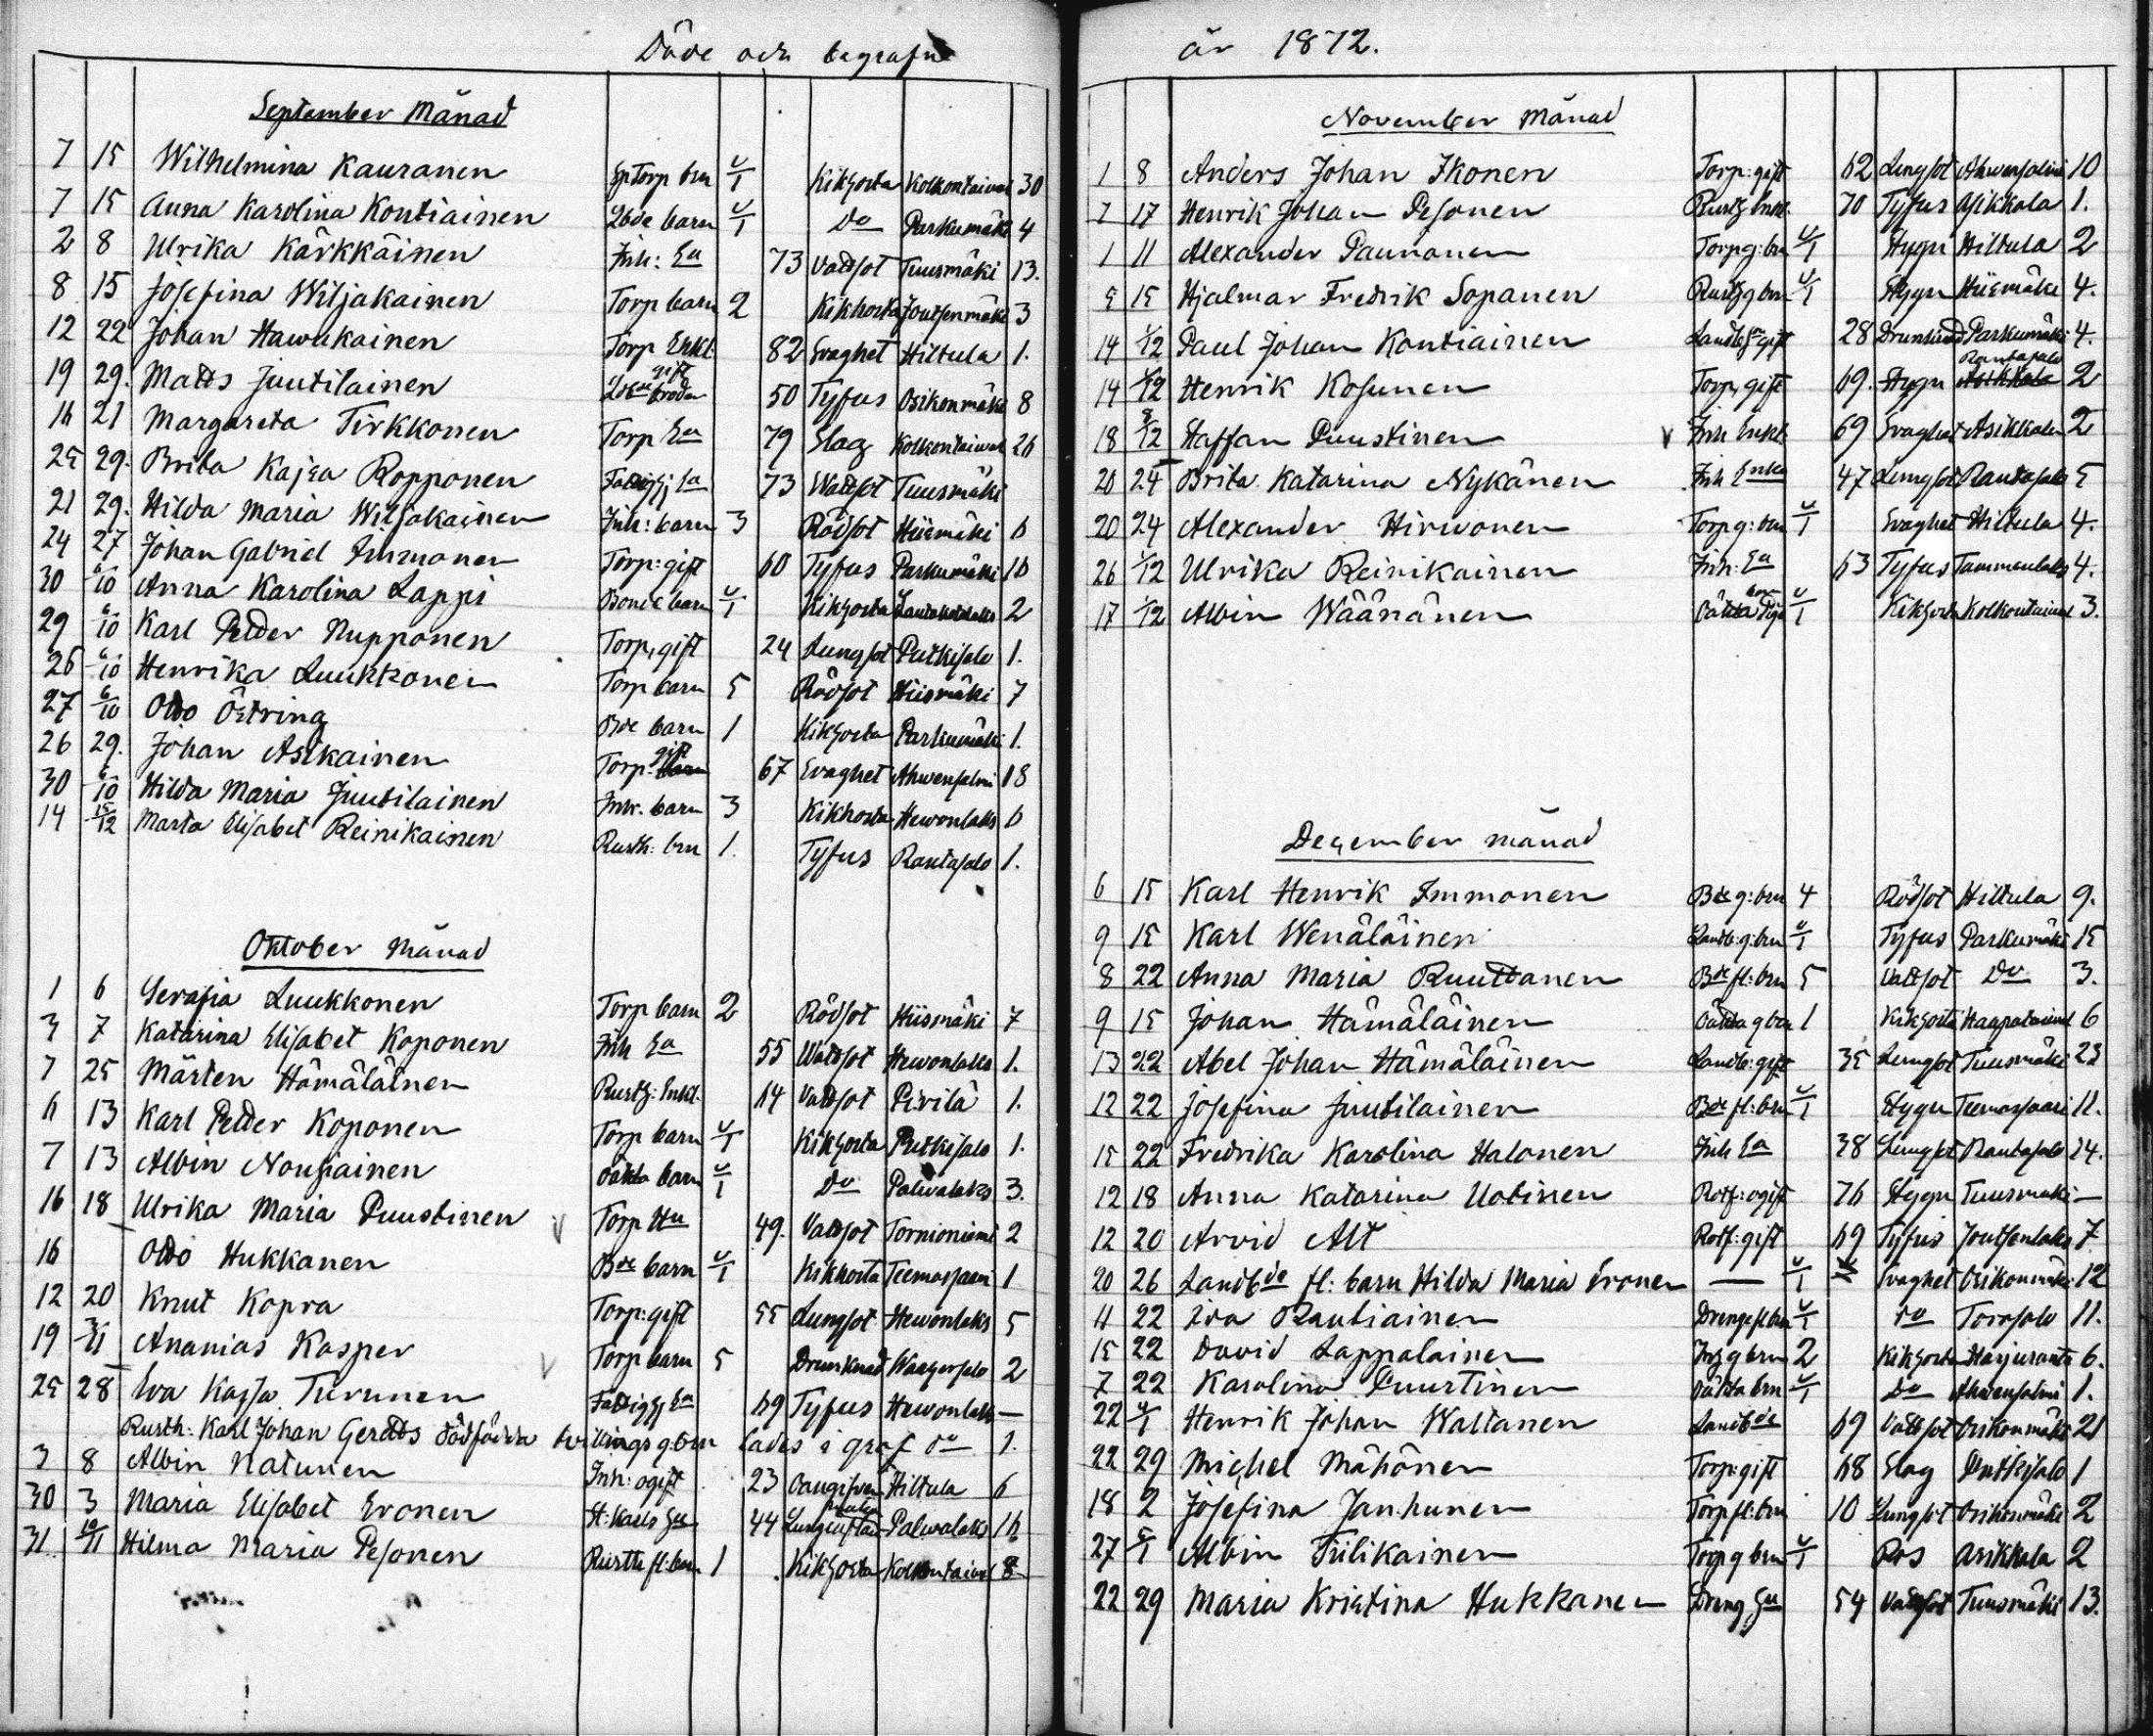 Döde och begrafne
September Månad
7 15 Wilhelmina Kauranen Sp Torp brn u/1 Kikhosta Kolkontaival 30
7 15 Anna Karolina Kontiainen Lbde barn u/1 Do Parkumäki 4
2 8 Ulrika Kärkkäinen Inh: Ea 73 Vattsot Tuusmäki 13.
8 15 Josefina Wiljakainen Torp barn 2 Kikhosta Joutsenmäki 3
12 22 Johan Hawukainen Torp Enkl. 82 Svaghet Hiltula 1.
19 29. Matts Juutilainen gift 50 Tyfus Osikonmäki 8
16 21 Margareta Tirkkonen Torp Ea 79 Slag Kolkontaival 26
25 29. Brita Kajsa Ropponen Fattighj Ea 73 Wattsot Tuusmäki
21 29. Hilda Maria Wiljakainen Inh: barn 3 Rödsot Hiismäki 6
24 27 Johan Gabriel Immonen Torp: gift 60 Tyfus Parkumäki 16
30 6/10 Anna Karolina Lappi Bonde barn u/1 Kikhosta 2
29 6/10 Karl Petter Nupponen Torp, gift 24 Lungsot Putkisalo 1.
26 6/10 Henrika Luukkonen Torp barn 5 Rödsot Hiismäki 7
27 6/10 Otto Östring Bde barn 1 Kikhosta Parkumäki 1.
26 29. Johan Asikainen Torp: gift 67 Svaghet Ahvensalmi 18
30 6/10 Hilda Maria Juutilainen Inh. barn 3 Kikhosta Hevonlaks 6
14 15/12 Marta Elisabet Reinikainen Rusth: brn 1. Tyfus Rantasalo 1.
Oktober Månad
1 6 Serafia Luukkonen Torp barn 2 Rödsot Hiismäki 7
3 7 Katarina Elisabet Koponen Inh Ea 55 Wattsot Hewonlaks 1.
7 25 Mårten Hämäläinen Rusth: Enkl. 64 Vattsot Pirilä 1.
6 13 Karl Petter Koponen Torp barn u/1 Kikhosta Putkisalo 1.
7 13 Albin Nousiainen oäkta barn u/1 Do Palvalaks 3.
16 18 Ulrika Maria Puustinen Torp Hu 49. Vattsot Tornioniemi 2
16 Otto Hukkanen Bde barn u/1 Kikhosta Teemassaari 1
12 20 Knut Kopra Torp: gift 55 Lungsot Hewonlaks 5
19 3/11 Ananias Kasper Torp barn 5 Drunknad Waahersalo 2
25 28 Eva Kajsa Turunen Fattighj Ea 69 Tyfus Hewonlaks —
Rusth: Karl Johan Geratts dödfödda tvillings g. brn lades i graf do 1.
3 8 Albin Natunen Inh: ogift 23 Hiltula 6
30 3 Maria Elisabet Eronen 44 Palvalaks 16
31 10/11 Hilma Maria Pesonen Rusth fl: barn 1 Kikhosta Kolkontaival 8
år 1872.
November Månad
1 8 Anders Johan Ikonen Torp: gift 62 Lungsot Ahvensalmi 10
7 17 Henrik Johan Pesonen Rusth Enkl. 70 Tyfus Asikkala 1.
1 11 Alexander Paunonen Torp g: brn u/1 Stygn Hiltula 2
5 15 Hjalmar Fredrik Sopanen Rusth g brn u/1 Stygn Hiismäki 4.
14 1/12 Paul Johan Kontiainen gift 28 Drunknad Parkumäki 4.
14 1/12 Henrik Kosunen Torp, gift 69. Stygn Rantasalo 2
18 8/12 Staffan Puustinen Inh Enkl. 69 Svaghet Asikkala 2
20 24 Brita Katarina Nykänen Inh Enka 47 Lungsot Rantasalo 5
20 24 Alexander Hirvonen Torp g: brn u/1 Svaghet Hiltula 4.
26 1/12 Ulrika Reinikainen Inh: Ea 63 Tyfus Tammenlaks 4.
17 1/12 Albin Wäänänen oäkta Piga barn u/1 Kikhosta Kolkontaival 3.
December månad
6 15 Karl Henrik Immonen Bde g: brn 4 Rödsot Hiltula 9.
9 15 Karl Wenäläinen Landb: g: brn u/1 Tyfus Parkumäki 15
8 22 Anna Maria Ruuttanen Bde fl: brn 5 Vattsot Do 3.
9 15 Johan Hämäläinen oäkta g brn 1 Kikhosta Haapataival 6
13 22 Abel Johan Hämäläinen Landb: gift 35 Lungsot Tuusmäki 23
12 22 Josefina Juutilainen Bde fl: brn u/1 Stygn Teemassaari 11.
15 22 Fredrika Karolina Halonen Inh Ea 38 Lungsot Rantasalo 24.
12 18 Anna Katarina Uotinen Rotf: ogift 76 Stygn Tuusmäki —
12 20 Arvid Alt Rotf: gift 69 Tyfus Joutsenlaks 7
20 26 Landbde fl: barn Hilda Maria Eronen — u/1 Svaghet Osikonmäki 12
11 22 Ida Rautiainen Drenge fl brn u/1 do Torasalo 11.
15 22 David Lappalainen Inh g brn 2 Kikhosta Harjuranta 6.
7 22 Karolina Puustinen oäkta brn u/1 Do Ahvensalmi 1.
22 6/1 Henrik Johan Waltanen Landbde 69 Vattsot Osikonmäki 21
22 29 Michel Mähönen Torp: gift 68 Slag Putkisalo 1
18 2 Josefina Janhunen Torp fl: brn 10 Lungsot Osikonmäki 2
27 5/1 Albin Tiilikainen Torp g brn u/1 Ros Asikkala 2
22 29 Maria Kristina Hukkanen Dreng Hu 54 Vattsot Tuusmäki 13.